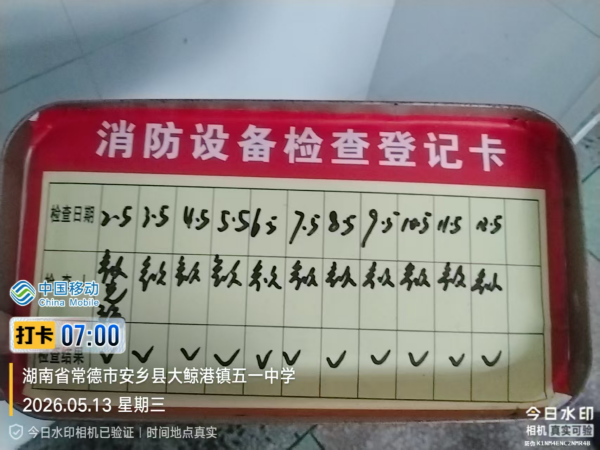 消防设备检查登记卡
检查日期 2.5 3.5 4.5 5.5 6.5 7.5 8.5 9.5 10.5 11.5 12.5
检查结果 ✓ ✓ ✓ ✓ ✓ ✓ ✓ ✓ ✓ ✓ ✓
中国移动
China Mobile
打卡 07:00
湖南省常德市安乡县大鲸港镇五一中学
2026.05.13 星期三
今日水印相机已验证 | 时间地点真实
今日水印
相机 真实可验